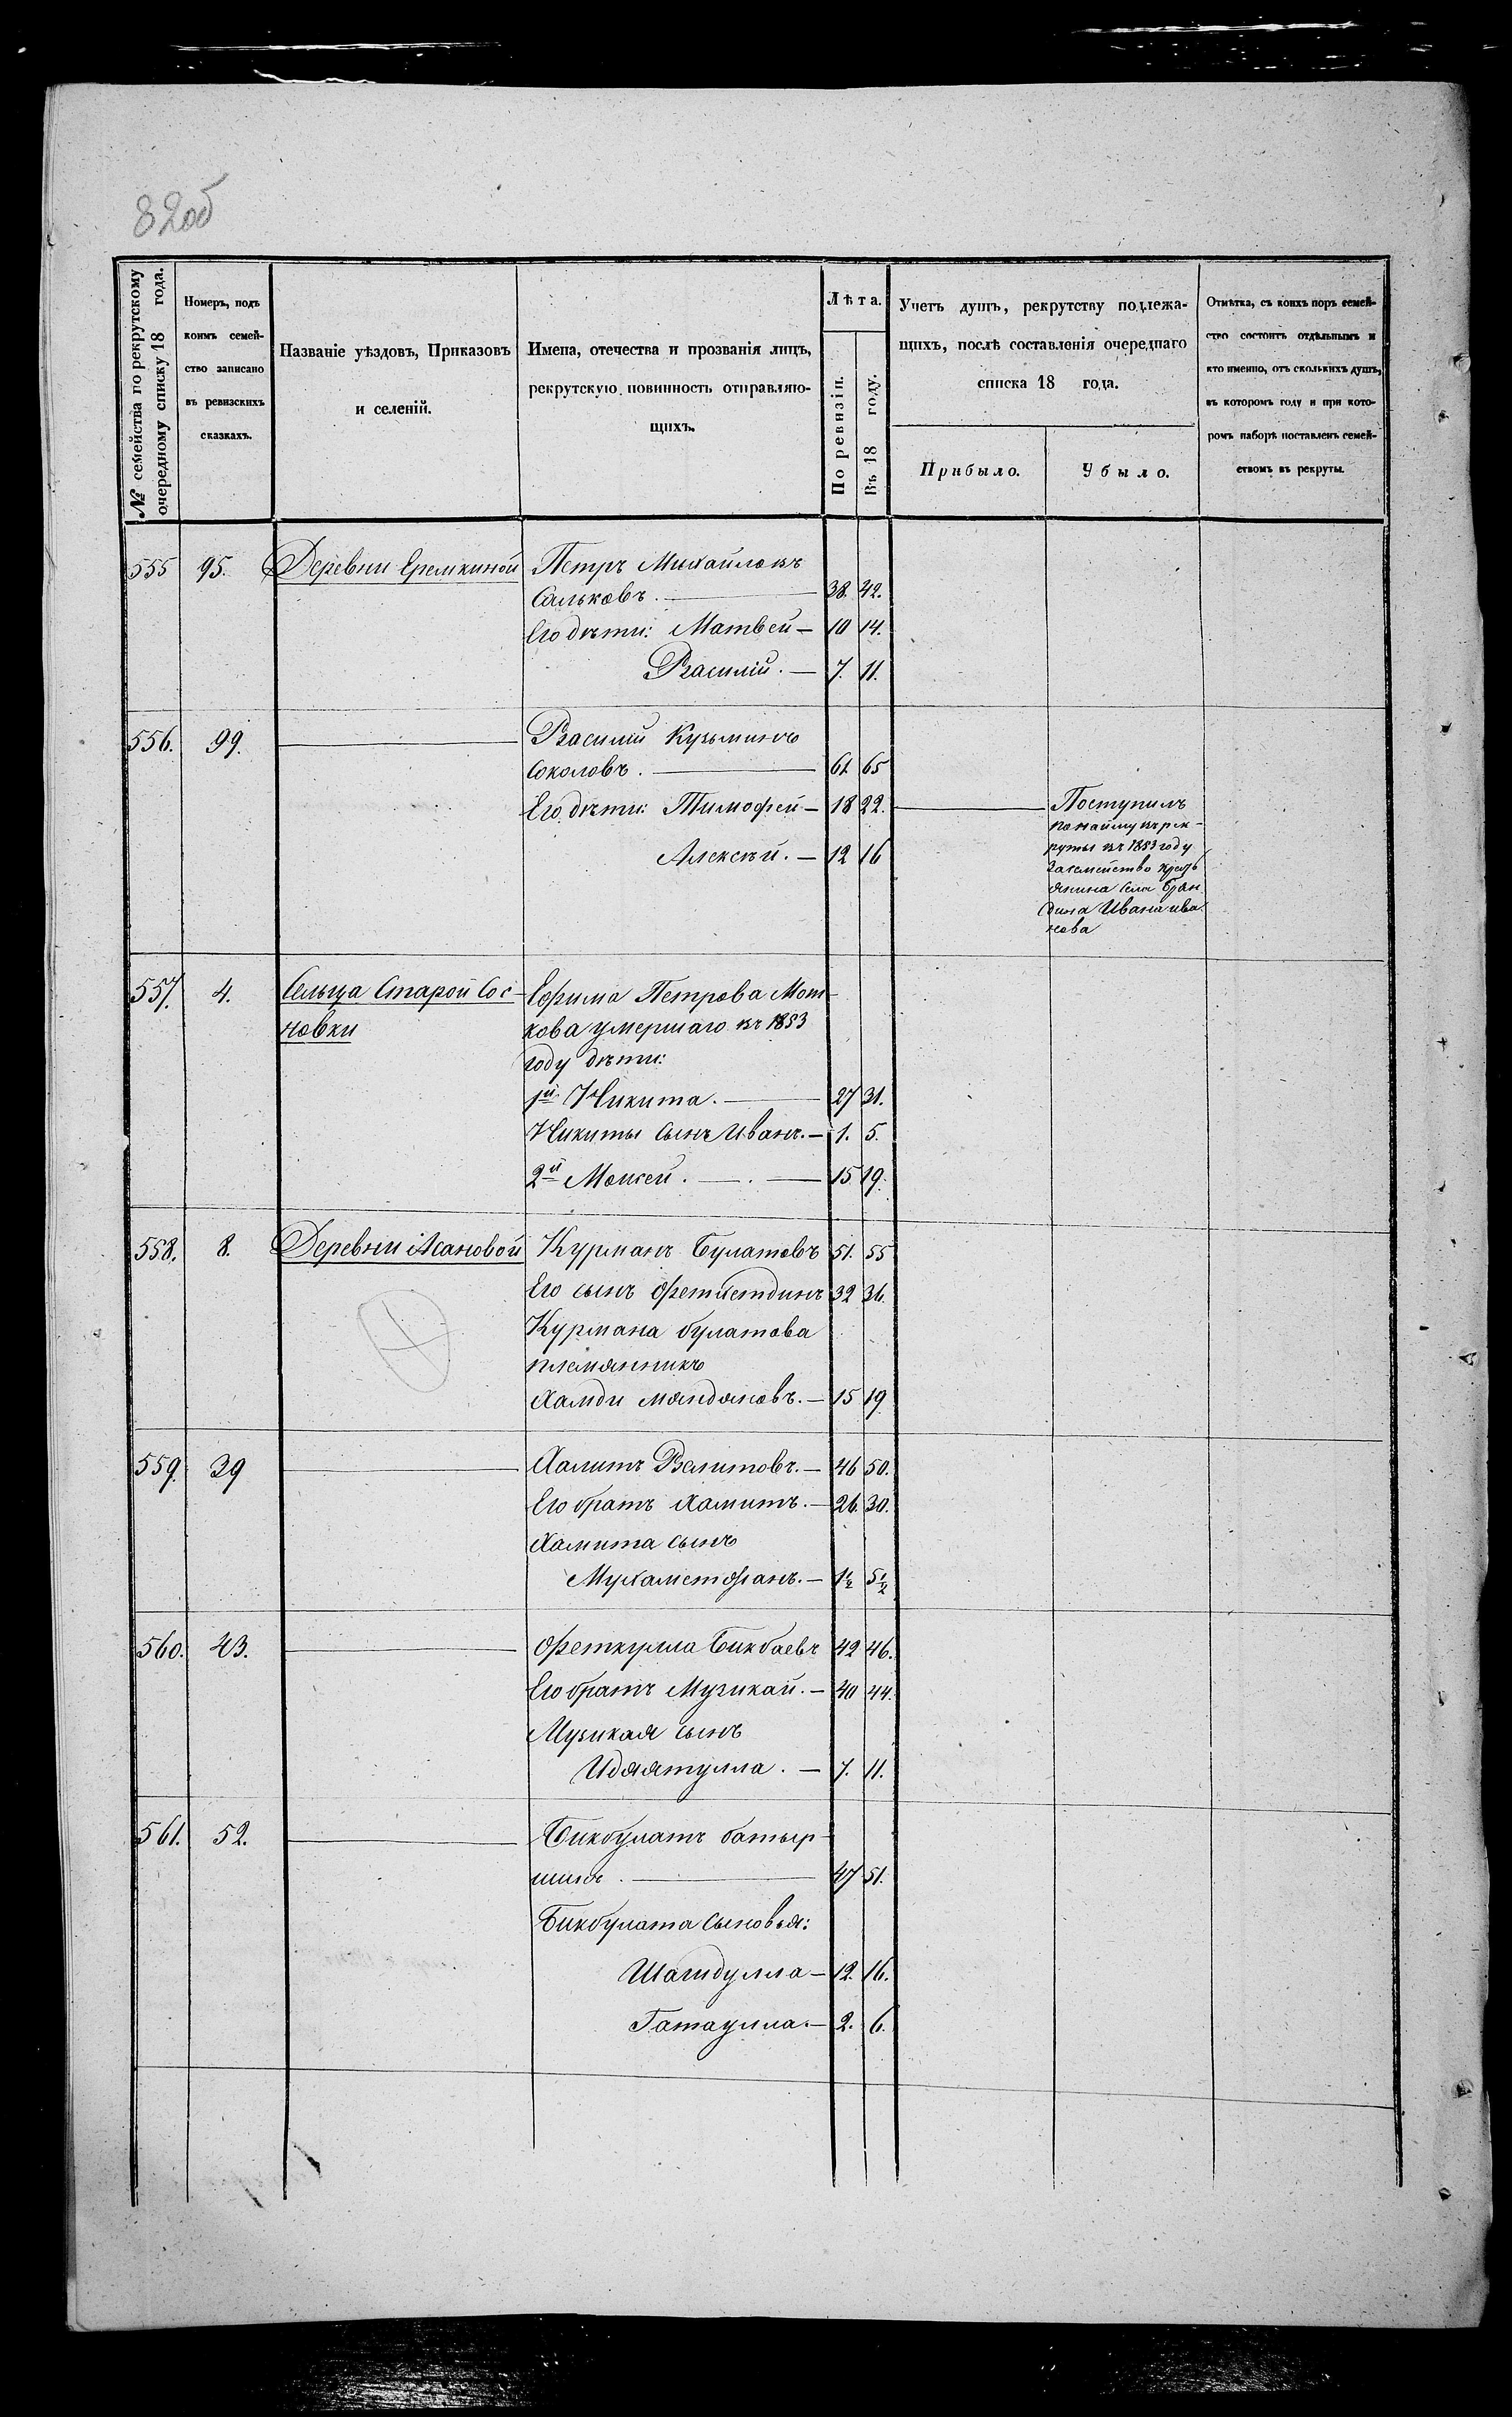 82об
№ семейства по рекрутскому
очередному списку 18 года.
Номеръ, подъ
коимъ семей-
ство записано
въ ревизскихъ
сказкахъ.
Названіе уѣздовъ, Приказовъ
и селеній.
Имена, отечества и прозванія лицъ,
рекрутскую повинность отправляю-
щихъ.
Лѣта.
По ревизіи.
Въ 18 году.
Учетъ душъ, рекрутству подлежа-
щихъ, послѣ составленія очереднаго
списка 18 года.
Прибыло.
Убыло.
Отмѣтка, съ коихъ поръ семей-
ство состоитъ отдѣльнымъ и
кто именно, отъ сколькихъ душъ,
въ которомъ году и при кото-
ромъ наборѣ поставленъ семей-
ствомъ въ рекруты.
555 95. Деревни Еремкиной Петръ Михайловъ
Сальковъ. — 38. 42.
Его дѣти: Матвей — 10 14.
Василій. — 7. 11.
556. 99. — Василій Кузьминъ
Соколовъ. — 61 65
Его дѣти: Тимофей — 18 22. — Поступилъ
по найму въ рек-
руты въ 1853 году
за семейство крестъ
янина села
Ивана ива
нова
Алексѣй. — 12 16
557. 4. Сельца Старой Сос- Ефима Петрова Мот-
новки кова умершаго въ 1853
году дѣти:
1й Никита. — 27 31.
Никиты сынъ Иванъ. — 1. 5.
2й Моисей. — 15 19.
558. 8. Деревни Асановой Курманъ Булатовъ 51. 55
Его сынъ Фетхетдинъ 32 36.
Курмана булатова
племянникъ
Хамди мяндяновъ. — 15 19
559. 39 — Халитъ Велитовъ. — 46 50.
Его братъ Хамитъ. — 26. 30.
Хамита сынъ
Мухаметфанъ. — 1½ 5½
560. 43. — Феткулла Бикбаевъ 42 46.
Его братъ Музикай. — 40 44.
Музикая сынъ
Идяятулла. — 7. 11.
561. 52. — Бикбулатъ батыр-
шинъ. — 47 51.
Бикбулата сыновья:
Шагидулла — 12. 16.
Гатаулла. — 2. 6.